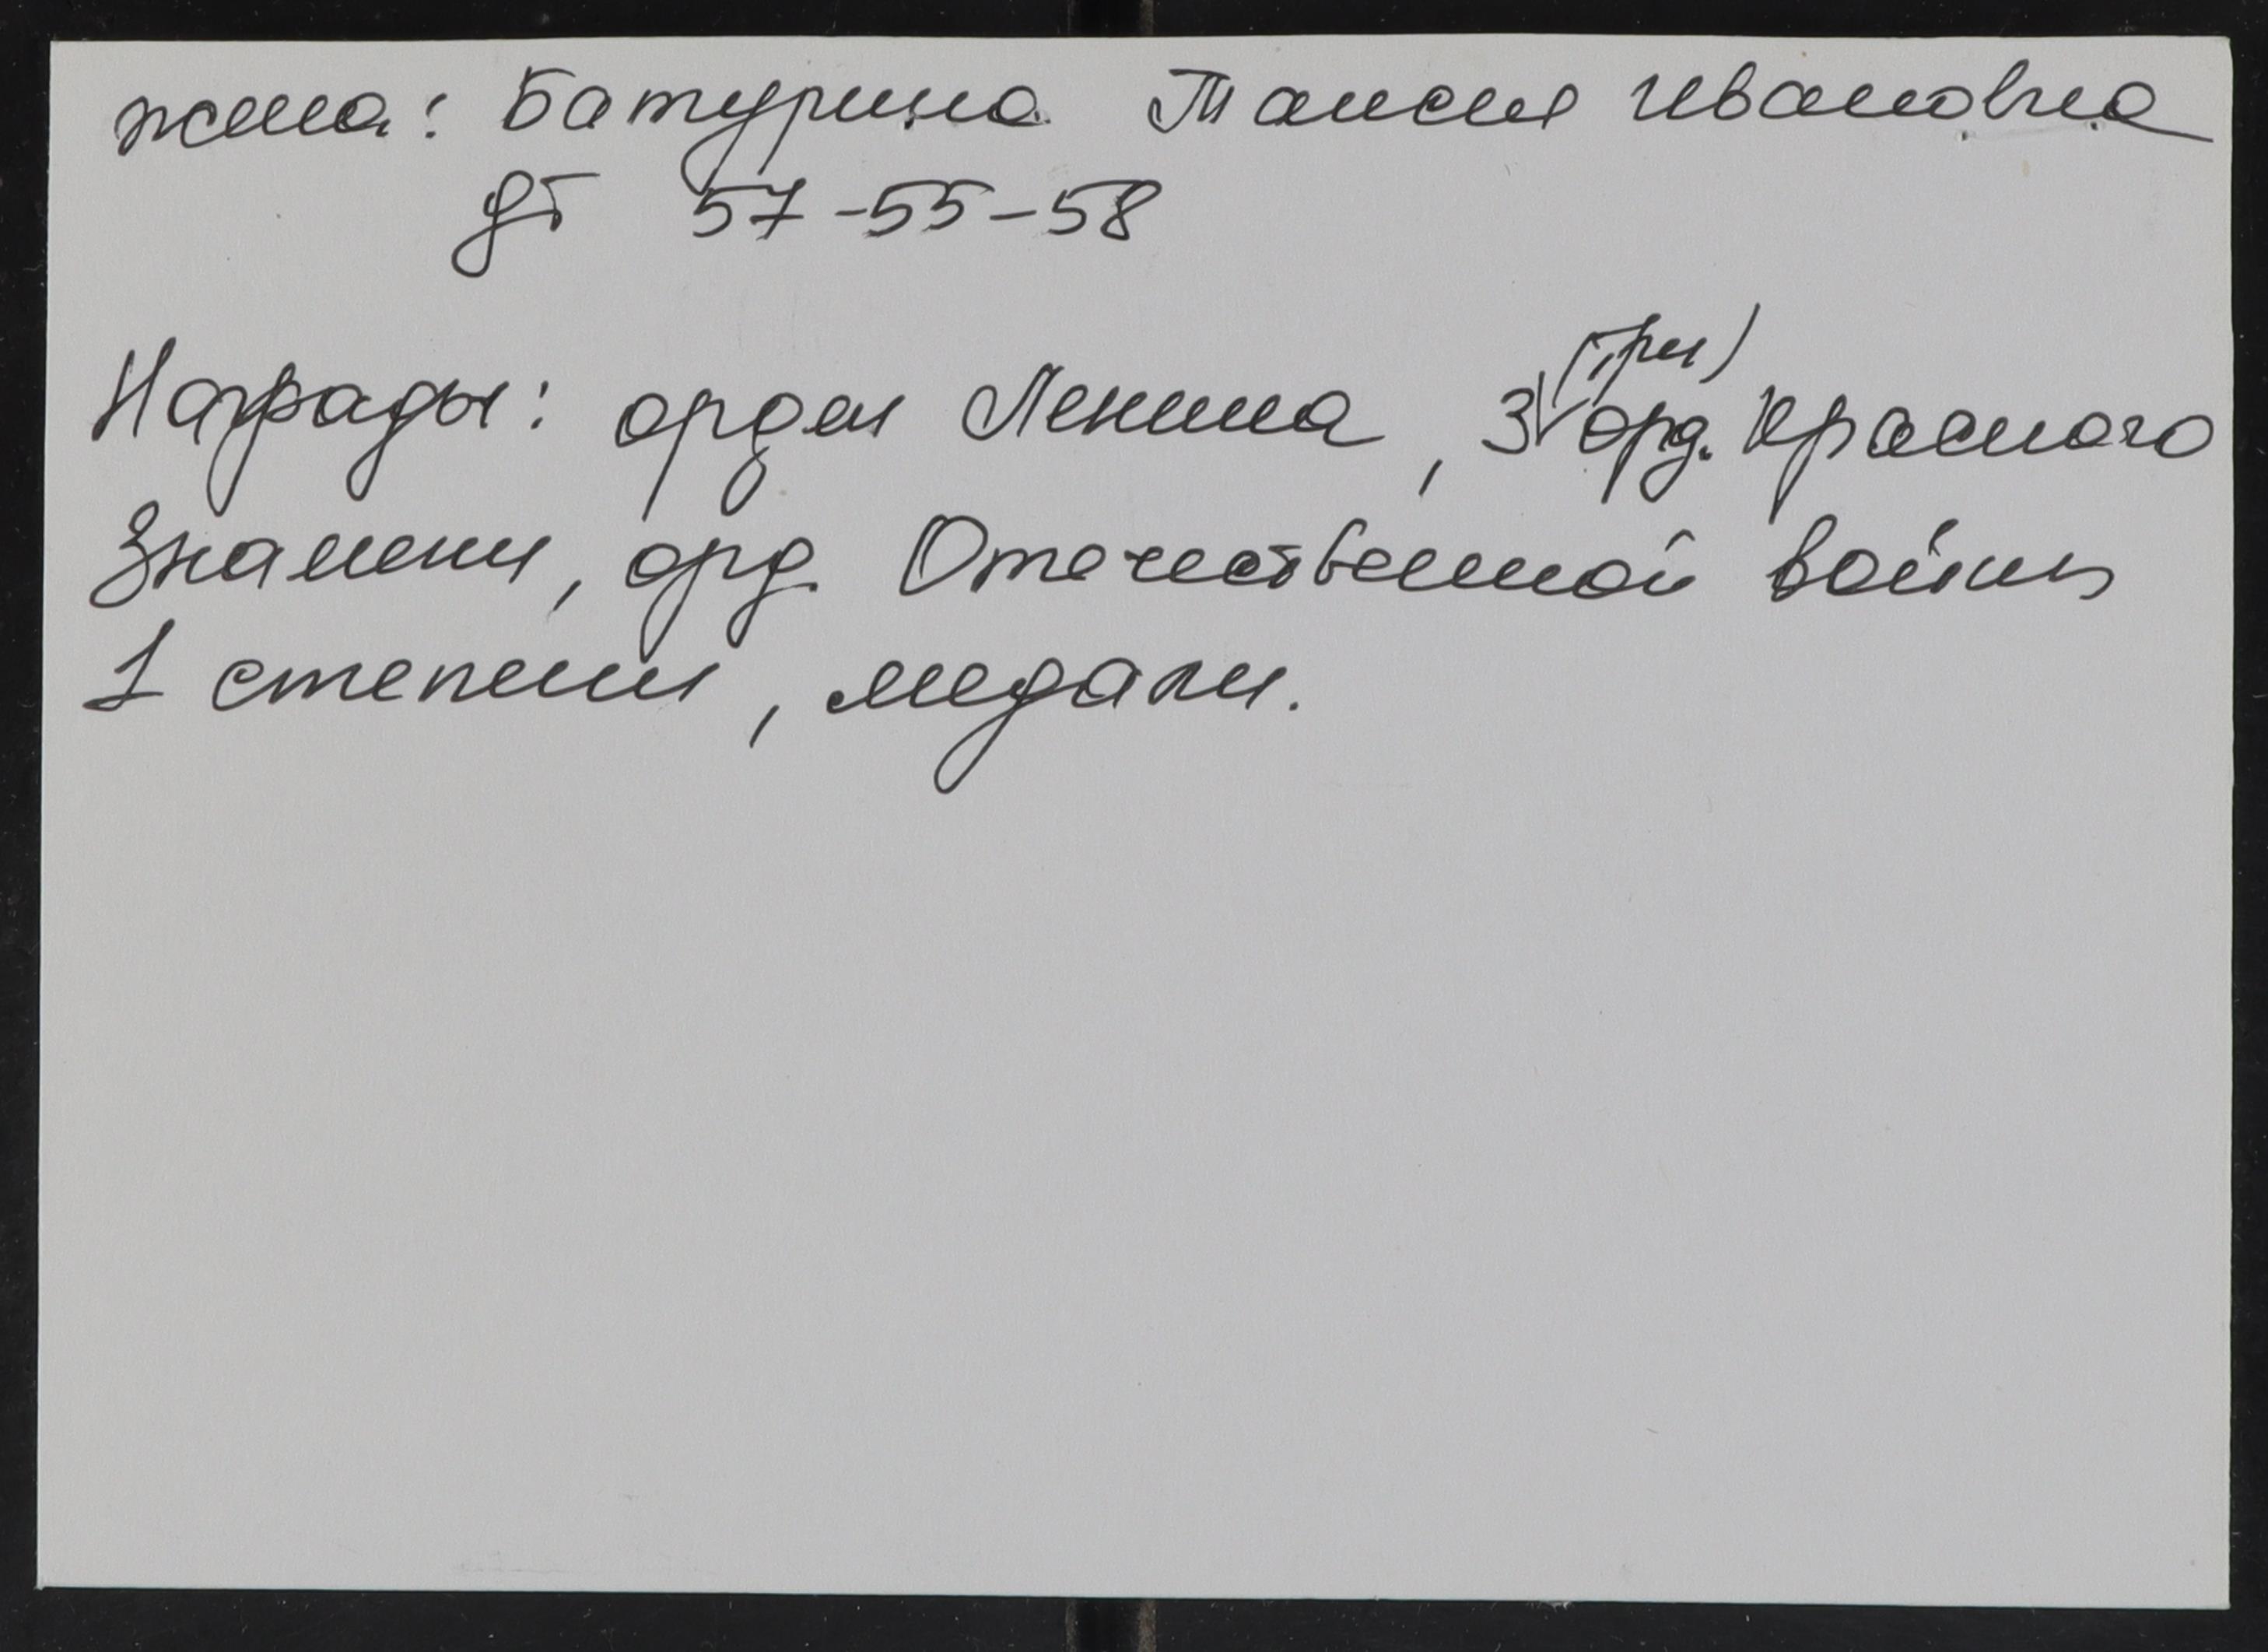 жена: Батурина Таисия Ивановна
дт 57-55-58
Награды: орден Ленина, 3 (три) орд. Красного
Знамени, орд. Отечественной войны
1 степени, медали.